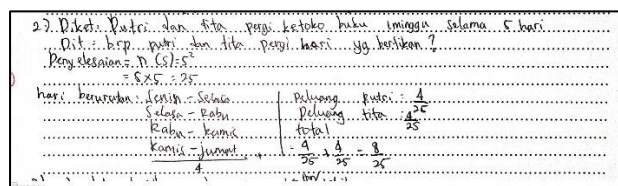 2). Diket: Putri dan tita pergi ketoko buku 1 minggu selama 5 hari
Dit: brp putri dan tita pergi hari yg bertikan?
Penyelesaian = n (S) = 5²
= 5 x 5 = 25
hari berurutan: Senin - Selasa
Selasa - Rabu
Rabu - kamis
kamis - jumat +
4
Peluang putri = 4/25
Peluang tita = 4/25
total
= 4/25 + 4/25 = 8/25